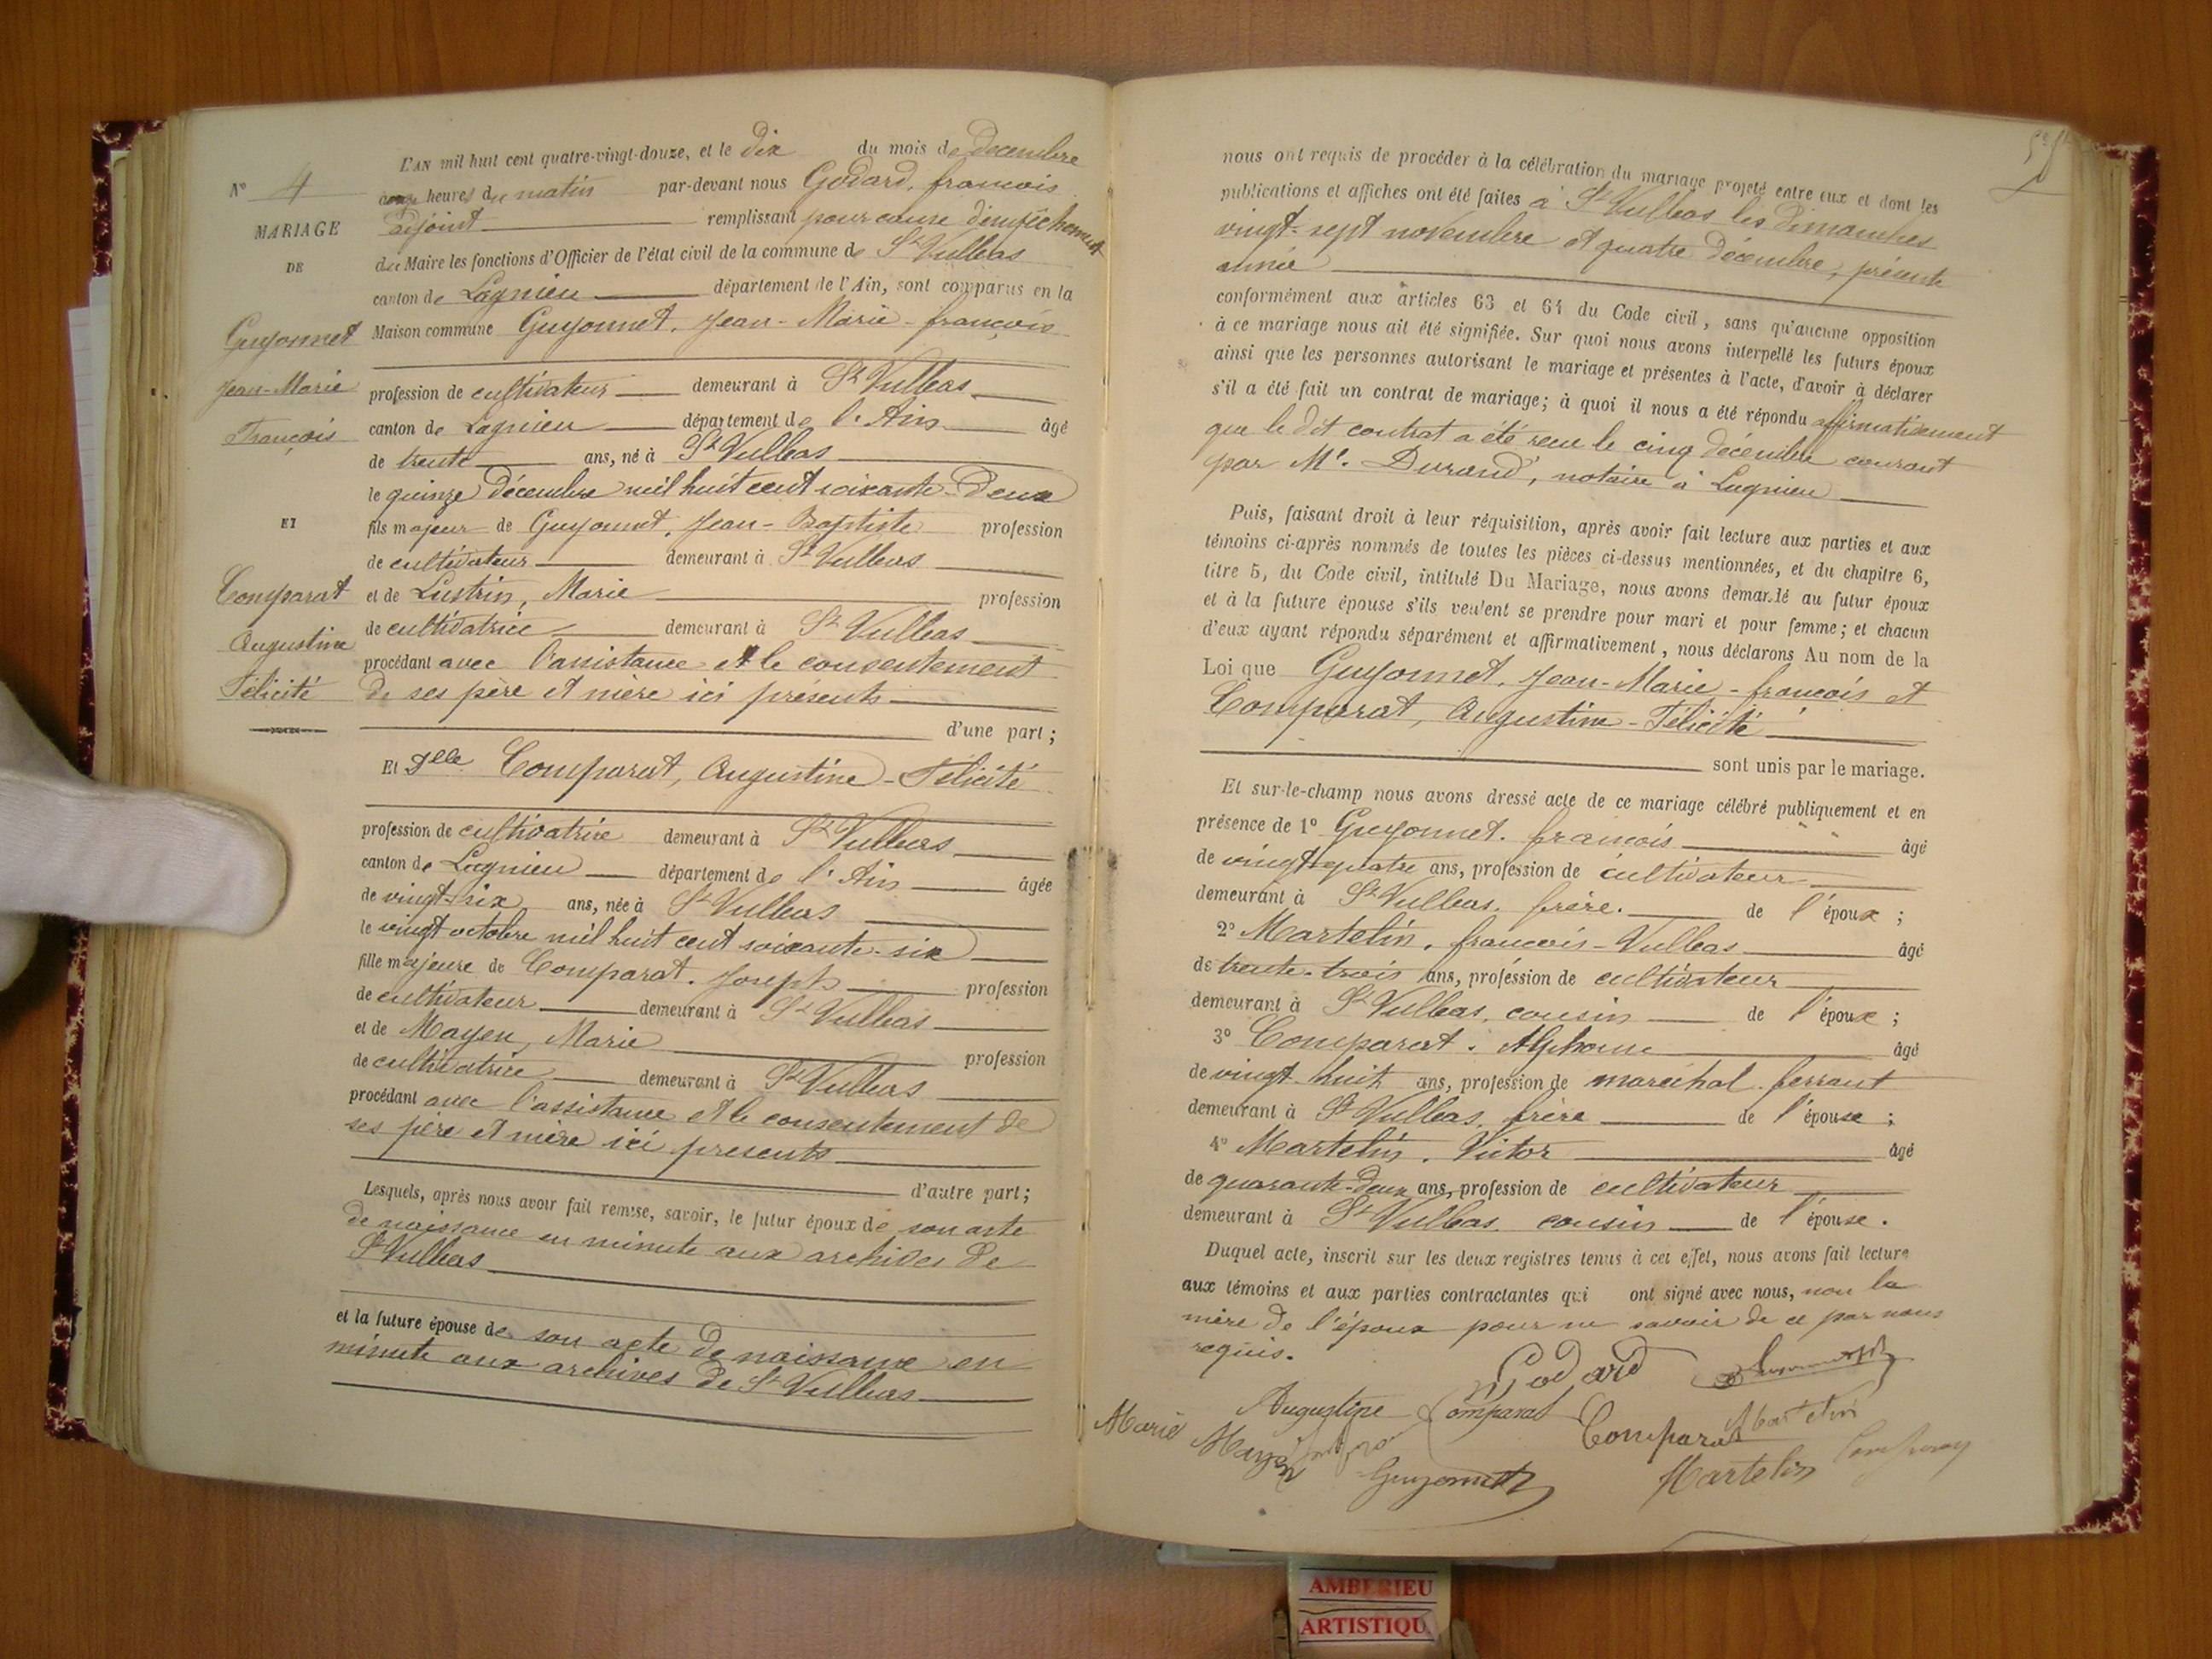 L'AN mil huit cent quatre-vingt-douze, et le dix du mois de Decembre
N° 4
onze heures du matin par-devant nous Godard, francois
MARIAGE
adjoint remplissant pour cause d'empêchement
DE
du Maire les fonctions d'Officier de l'état civil de la commune de St Vulbas
canton de Lagnieu département de l'Ain, sont comparus en la
Guyonnet
Maison commune Guyonnet, Jean-Marie-françois
Jean-Marie
profession de cultivateur demeurant à St Vulbas
François
canton de Lagnieu département de l'Ain âgé
de trente ans, né à St Vulbas
le quinze Décembre mil huit cent soixante-deux
ET
fils majeur de Guyonnet, Jean-Baptiste profession
de cultivateur demeurant à St Vulbas
Comparat
et de Lustrin, Marie profession
Augustine
de cultivatrice demeurant à St Vulbas
procédant avec l'assistance et le consentement
Félicité
de ses père et mère ici présents
d'une part ;
Et Delle Comparat, Augustine-Félicité
profession de cultivatrice demeurant à St Vulbas
canton de Lagnieu département de l'Ain âgée
de vingt-six ans, née à St Vulbas
le vingt octobre mil huit cent soixante-six
fille majeure de Comparat. Joseph profession
de cultivateur demeurant à St Vulbas
et de Mayen, Marie profession
de cultivatrice demeurant à St Vulbas
procédant avec l'assistance et le consentement de
ses père et mère ici presents
d'autre part ;
Lesquels, après nous avoir fait remise, savoir, le futur époux de son acte
de naissance en minute aux archives de
St Vulbas
et la future épouse de son acte de naissance en
minute aux archives de St Vulbas
nous ont requis de procéder à la célébration du mariage projeté entre eux et dont les
publications et affiches ont été faites à St Vulbas les Dimanches
vingt-sept novembre et quatre Décembre, présente
année
conformément aux articles 63 et 64 du Code civil, sans qu'aucune opposition
à ce mariage nous ait été signifiée. Sur quoi nous avons interpellé les futurs époux
ainsi que les personnes autorisant le mariage et présentes à l'acte, d'avoir à déclarer
s'il a été fait un contrat de mariage ; à quoi il nous a été répondu affirmativement
que le dit contrat a été reçu le cinq décembre courant
par Me. Durand, notaire à Lagnieu
Puis, faisant droit à leur réquisition, après avoir fait lecture aux parties et aux
témoins ci-après nommés de toutes les pièces ci-dessus mentionnées, et du chapitre 6,
titre 5, du Code civil, intitulé Du Mariage, nous avons demandé au futur époux
et à la future épouse s'ils veulent se prendre pour mari et pour femme ; et chacun
d'eux ayant répondu séparément et affirmativement, nous déclarons Au nom de la
Loi que Guyonnet, Jean-Marie-francois et
Comparat, Augustine-Félicité
sont unis par le mariage.
Et sur-le-champ nous avons dressé acte de ce mariage célébré publiquement et en
présence de 1° Guyonnet. francois âgé
de vingt-quatre ans, profession de cultivateur
demeurant à St Vulbas. frère. de l'époux ;
2° Martelin. francois-Vulbas âgé
de trente-trois ans, profession de cultivateur
demeurant à St Vulbas, cousin de l'époux ;
3° Comparat. Alphonse âgé
de vingt-huit ans, profession de maréchal-ferrant
demeurant à St Vulbas. frère de l'épouse ;
4° Martelin. Victor âgé
de quarante-deux ans, profession de cultivateur
demeurant à St Vulbas. cousin de l'épouse.
Duquel acte, inscrit sur les deux registres tenus à cet effet, nous avons fait lecture
aux témoins et aux parties contractantes qui ont signé avec nous, non la
mère de l'époux pour ne savoir de ce par nous
requis.
Godard
Augustine Comparat
Comparat Martelin
Marie Mayen
Guyonnet
Martelin
AMBERIEU
ARTISTIQU